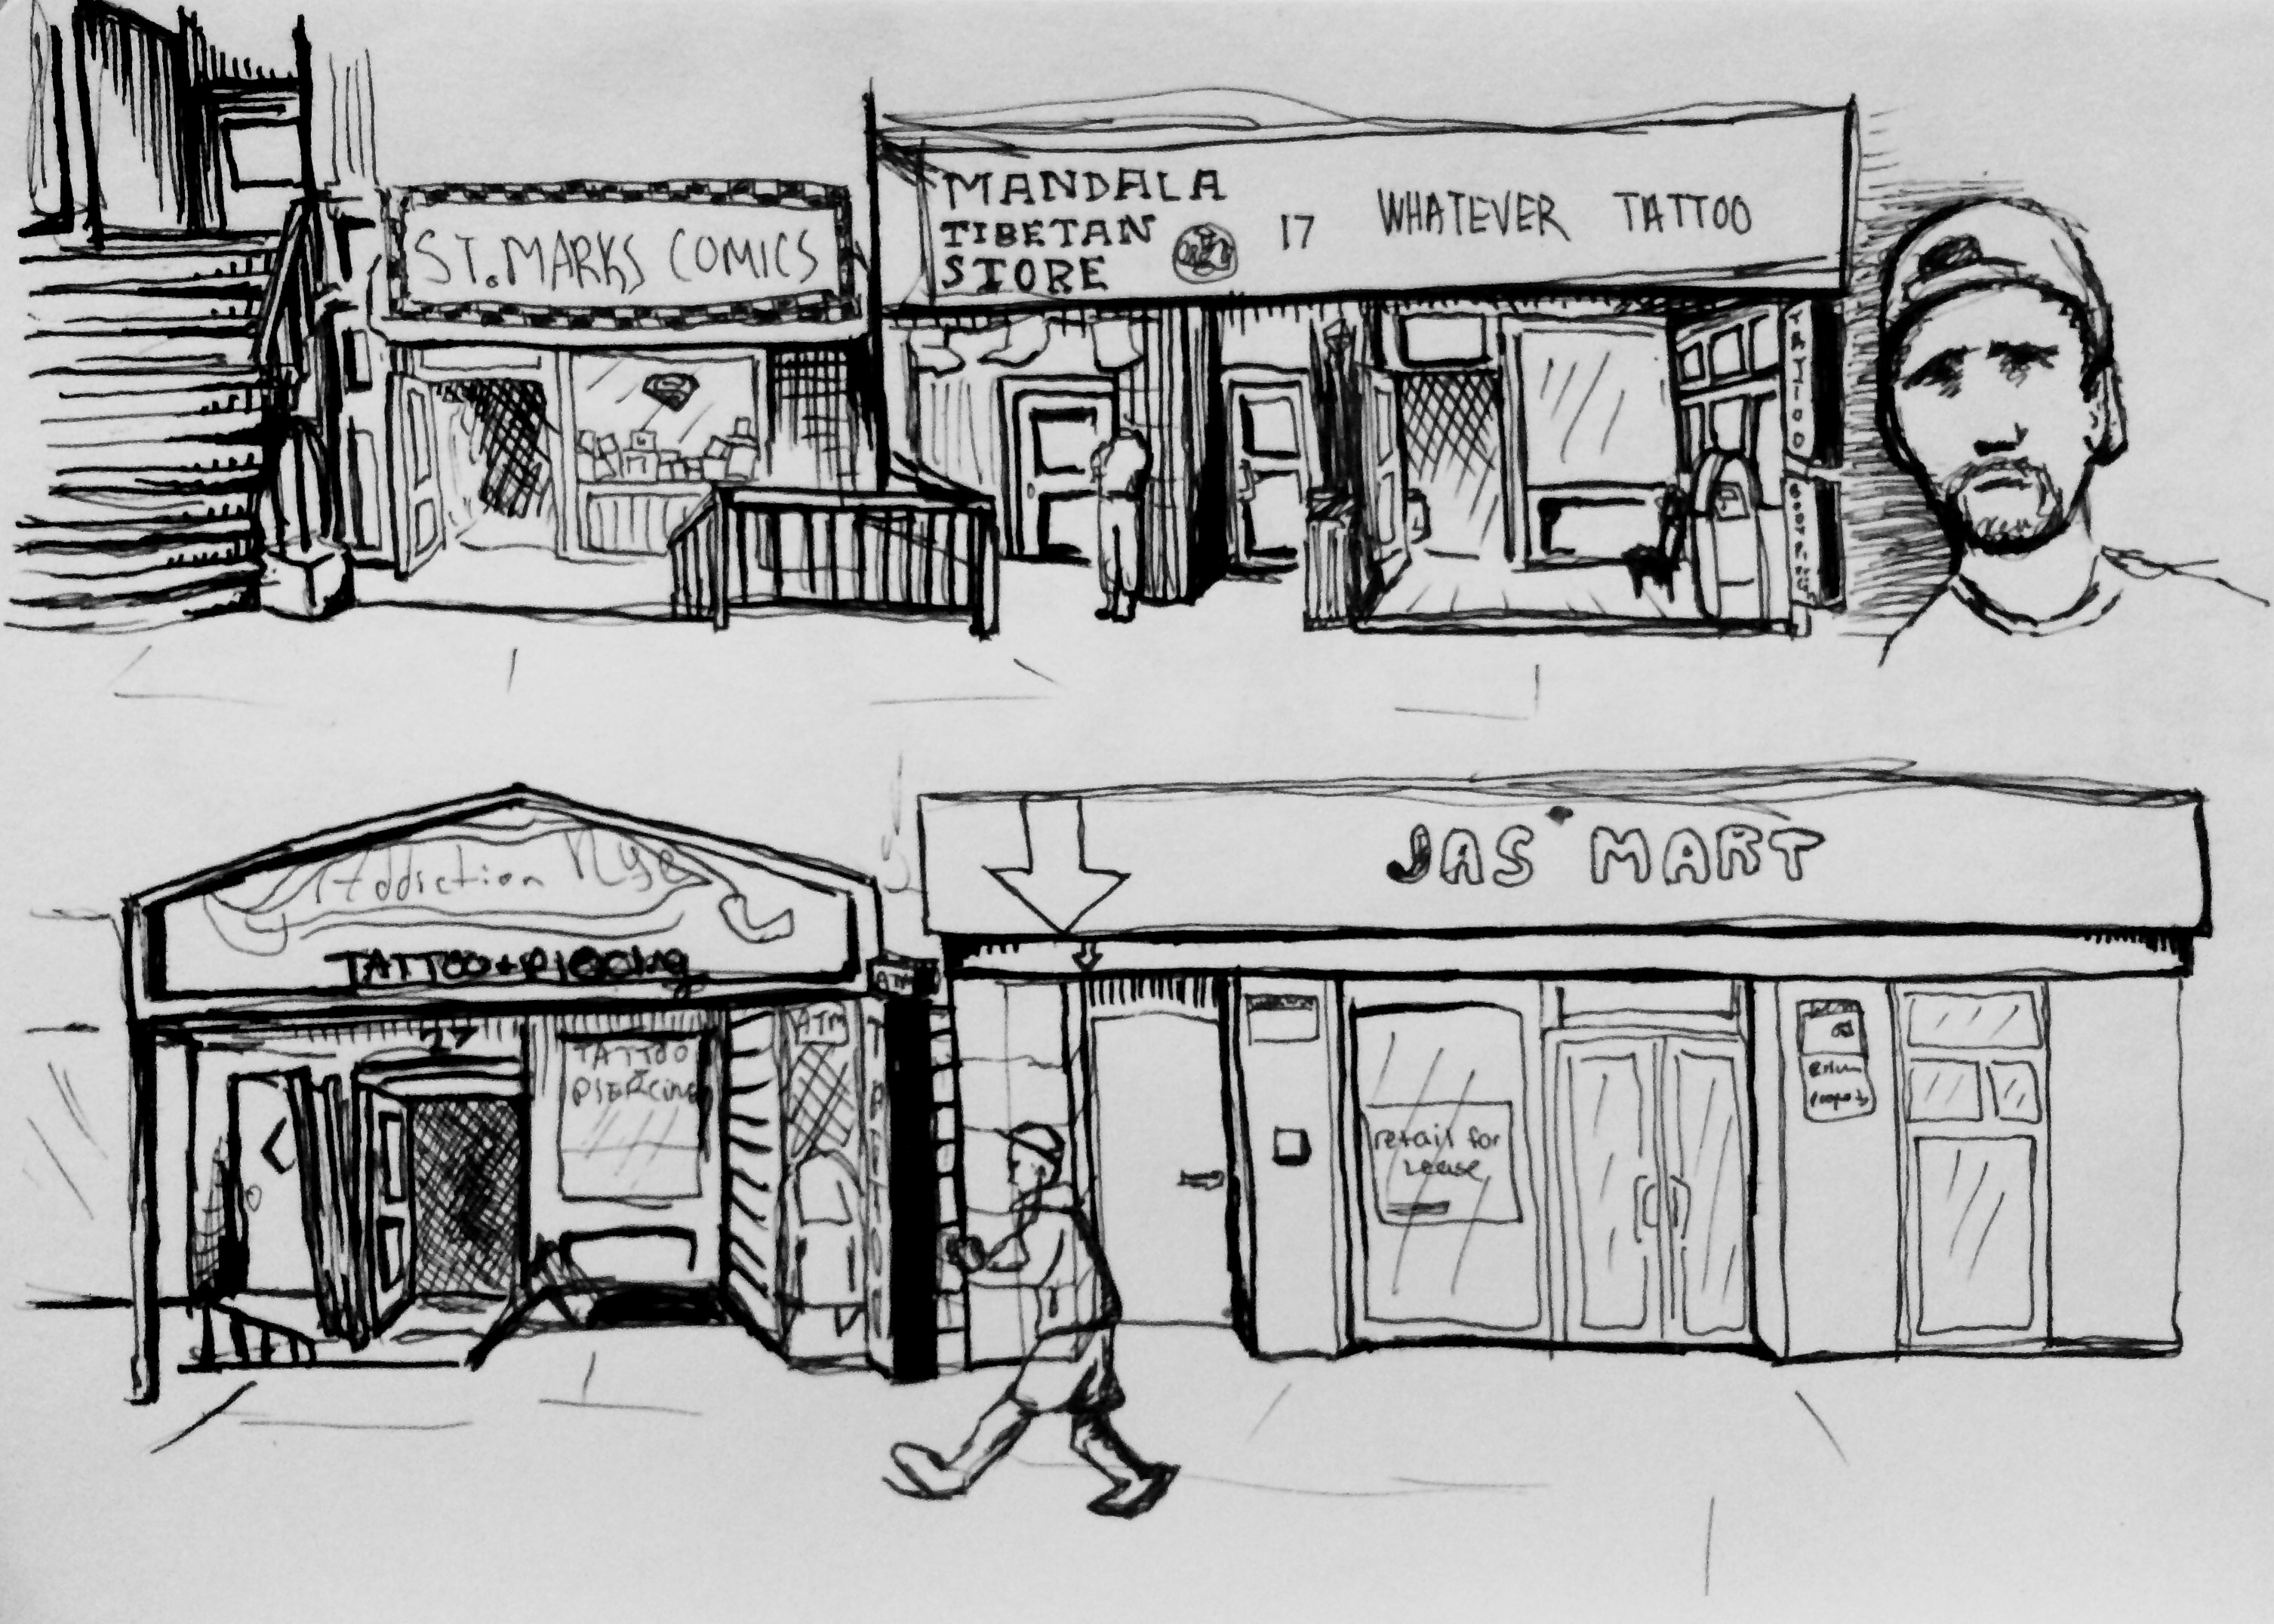 ST. MARKS COMICS
MANDALA
TIBETAN
STORE
17
WHATEVER TATTOO
TATTOO
Addiction NYC
TATTOO + PIERCING
ATM
27
TATTOO
PIERCING
ATM
TATTOO
JAS MART
retail for
Lease